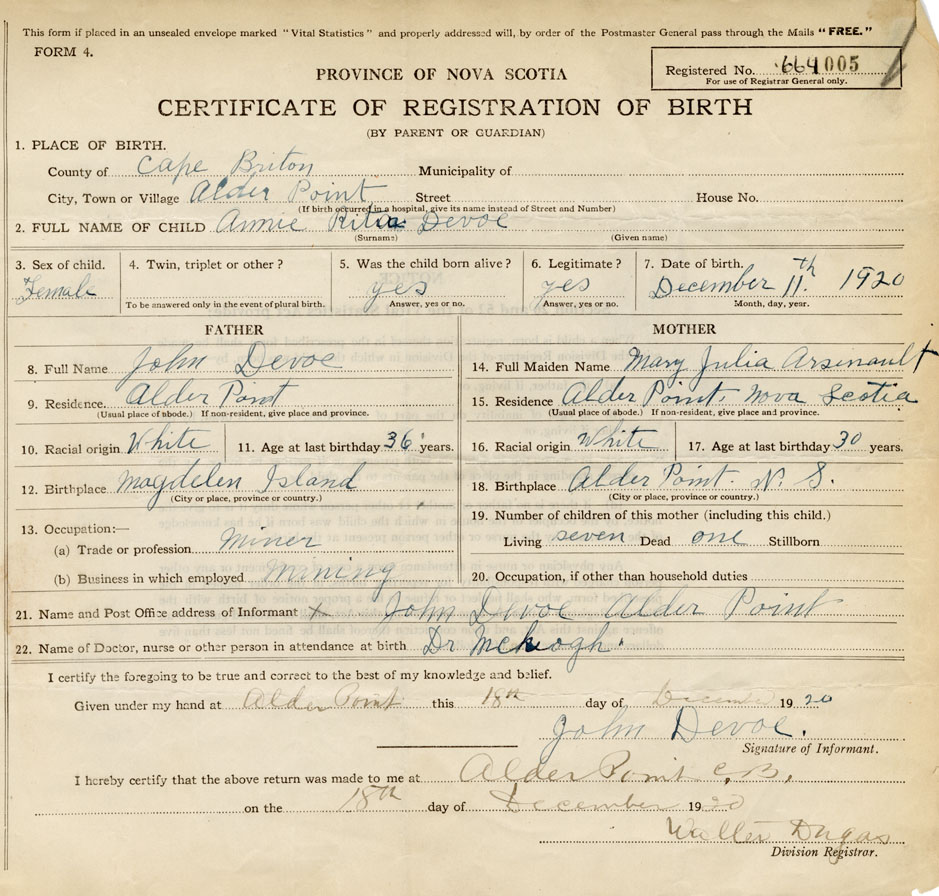 This form if placed in an unsealed envelope marked "Vital Statistics" and properly addressed will, by order of the Postmaster General pass through the Mails "FREE."
FORM 4.
Registered No. 664005
For use of Registrar General only.
PROVINCE OF NOVA SCOTIA
CERTIFICATE OF REGISTRATION OF BIRTH
(BY PARENT OR GUARDIAN)
1. PLACE OF BIRTH.
County of Cape Briton Municipality of
City, Town or Village Alder Point Street House No.
(If birth occurred in a hospital, give its name instead of Street and Number)
2. FULL NAME OF CHILD Annie Rita Devoe
(Surname) (Given name)
3. Sex of child. 4. Twin, triplet or other? 5. Was the child born alive? 6. Legitimate? 7. Date of birth.
Female yes yes December 11th 1920
To be answered only in the event of plural birth. Answer, yes or no. Answer, yes or no. Month, day, year.
FATHER
8. Full Name John Devoe
9. Residence. Alder Point
(Usual place of abode.) If non-resident, give place and province.
10. Racial origin White 11. Age at last birthday 36 years.
12. Birthplace Magdelen Island
(City or place, province or country.)
13. Occupation:—
(a) Trade or profession Miner
(b) Business in which employed mining
MOTHER
14. Full Maiden Name Mary Julia Arsenault
15. Residence Alder Point. Nova Scotia
(Usual place of abode.) If non-resident, give place and province.
16. Racial origin White 17. Age at last birthday 30 years.
18. Birthplace Alder Point. N. S.
(City or place, province or country.)
19. Number of children of this mother (including this child.)
Living seven Dead one Stillborn
20. Occupation, if other than household duties
21. Name and Post Office address of Informant x John Devoe Alder Point
22. Name of Doctor, nurse or other person in attendance at birth Dr McKeogh.
I certify the foregoing to be true and correct to the best of my knowledge and belief.
Given under my hand at Alder Point this 18th day of December 1920
John Devoe.
Signature of Informant.
I hereby certify that the above return was made to me at Alder Point C.B.
on the 18th day of December 1920
Walter Dugas
Division Registrar.